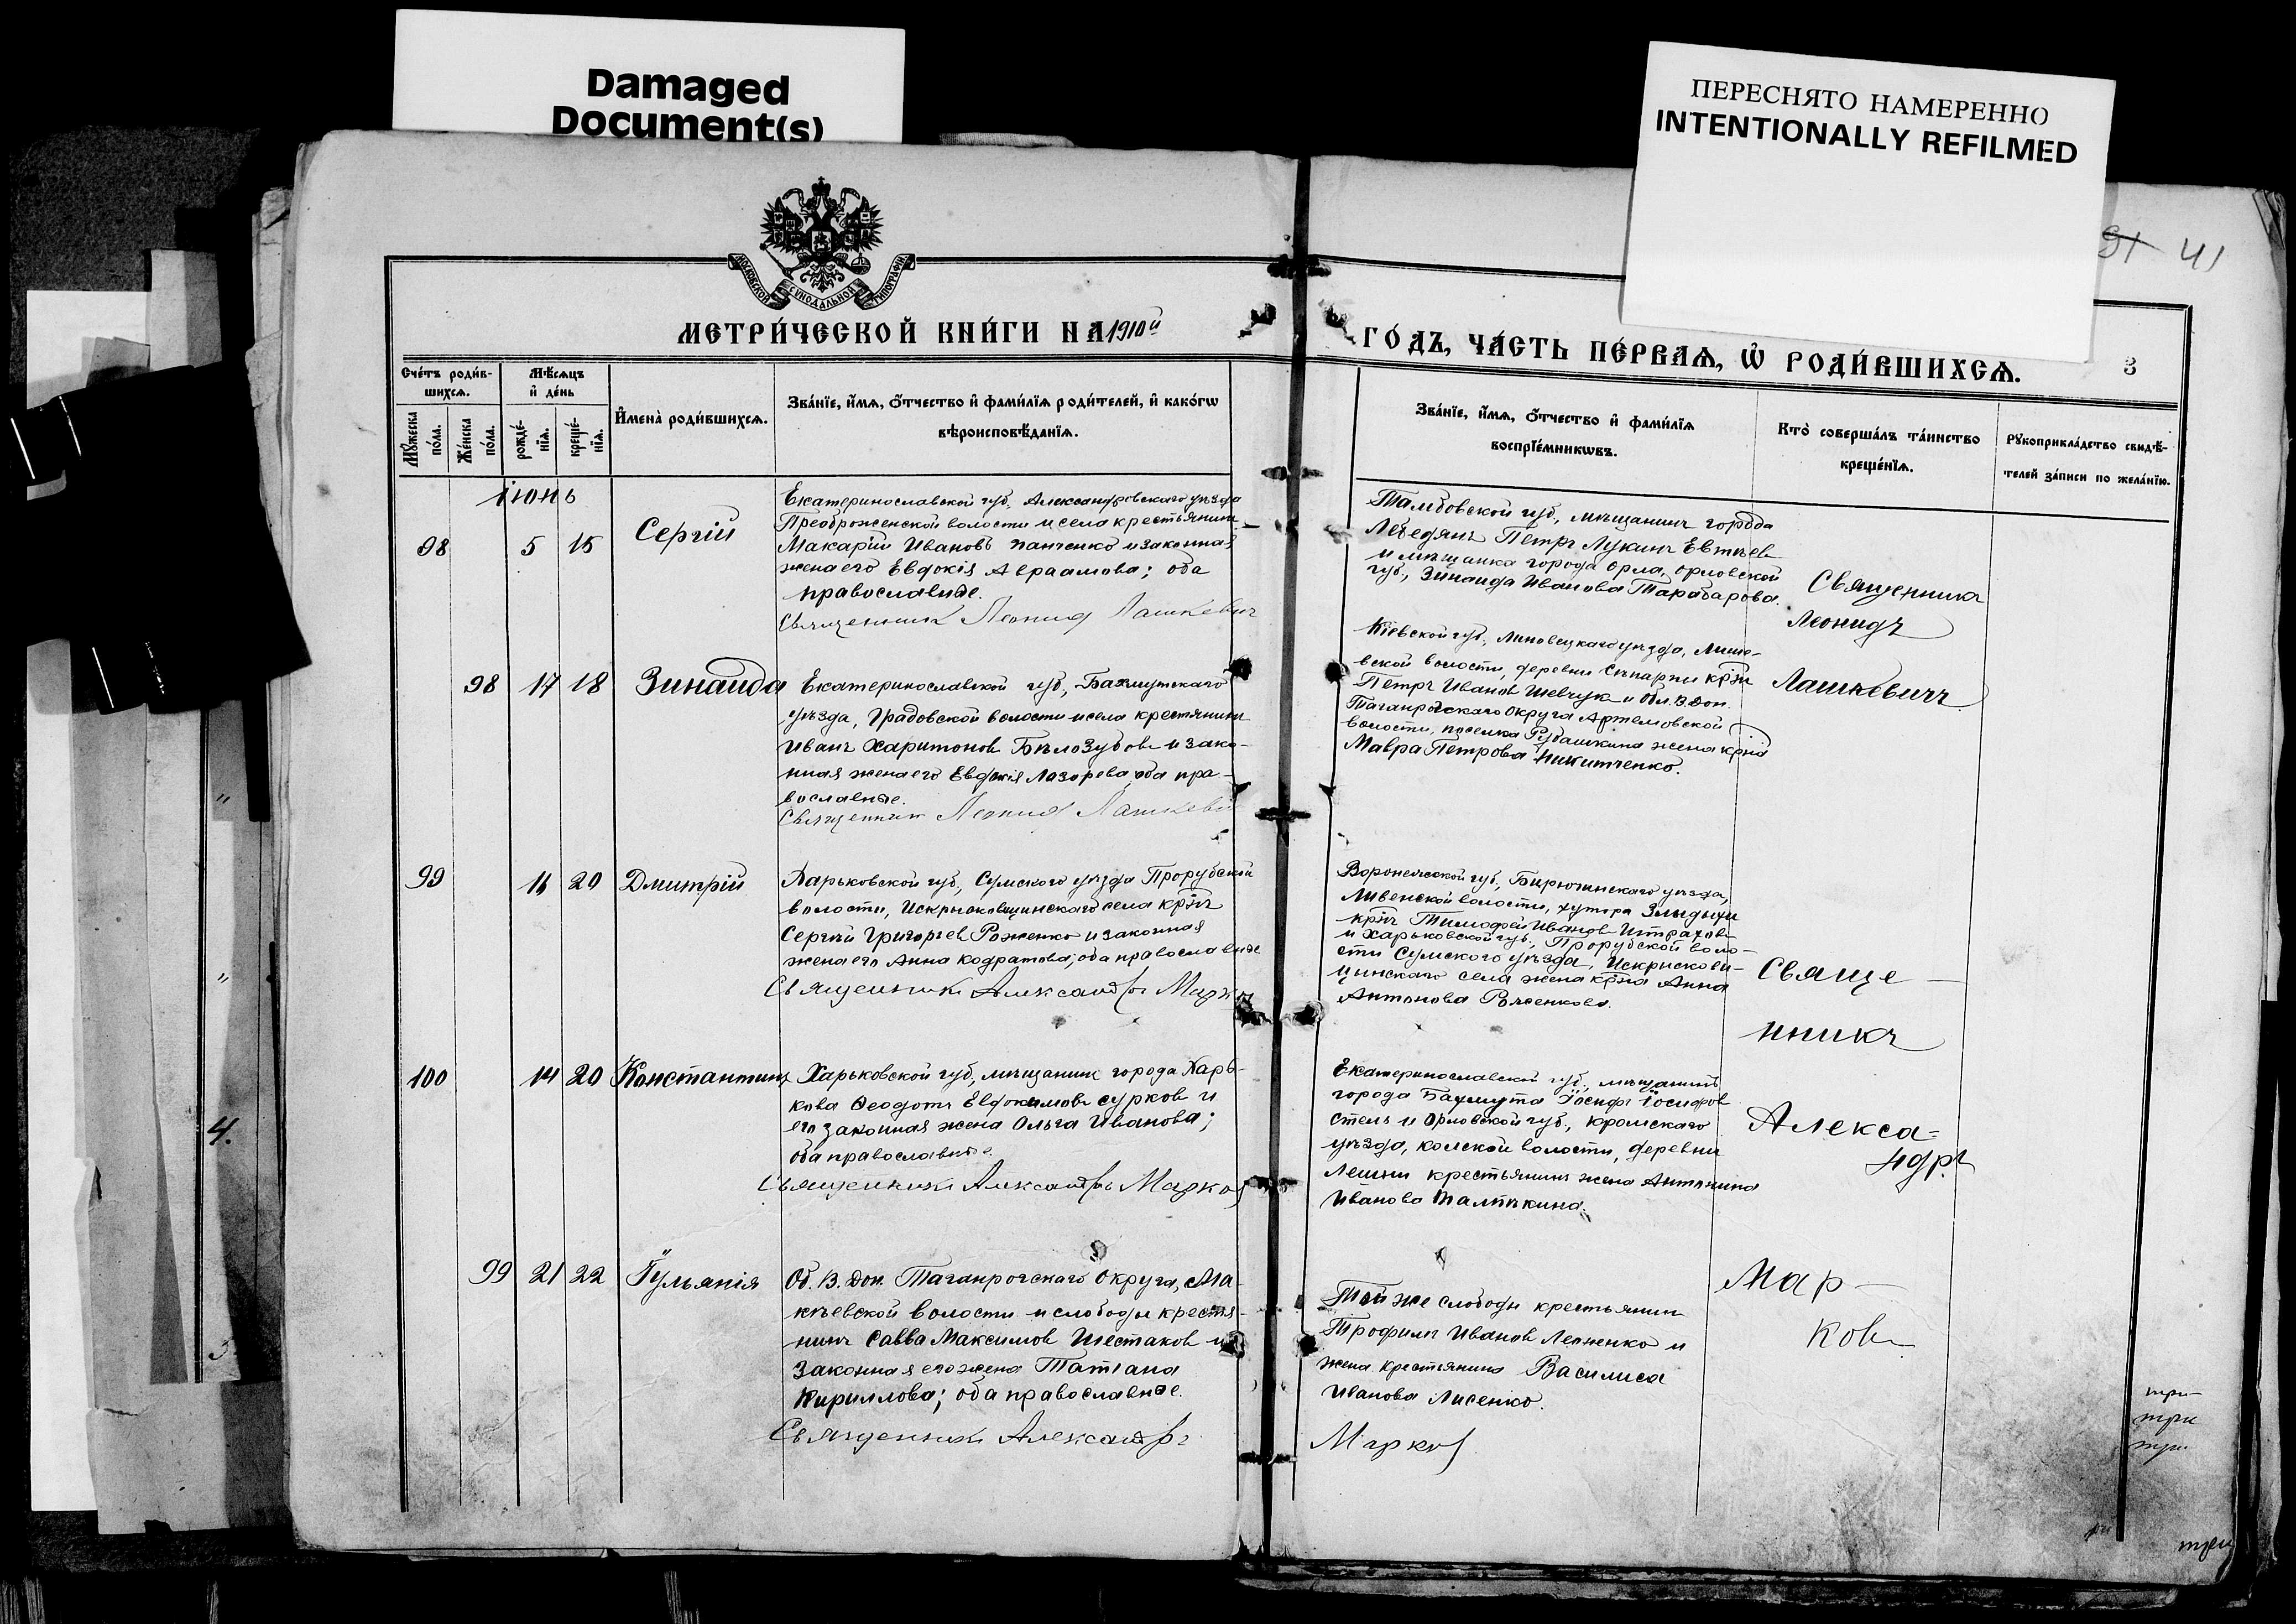 Damaged
Document(s)
ПЕРЕСНЯТО НАМЕРЕННО
INTENTIONALLY REFILMED
91 41
МОСКОВСКОЙ СѴНОДАЛЬНОЙ ТИПОГРАФІИ
МЕТРИ́ЧЕСКОЙ КНИ́ГИ НА 1910й
ГО́ДЪ, ЧА́СТЬ ПЕ́РВАѦ, Ѡ҆ РОДИ́ВШИХСѦ.
3
Сче́тъ роди́в-
шихсѧ.
Мѣ́сѧцъ
и҆ де́нь
Мꙋ́жеска
по́ла.
Же́нска
по́ла.
рожде́-
нїѧ.
креще́-
нїѧ.
И҆мена̀ роди́вшихсѧ.
Зва́нїе, и҆́мѧ, ѻ҆́тчество и҆ фами́лїѧ роди́телей, и҆ како́гѡ
вѣроисповѣ́данїѧ.
Зва́нїе, и҆́мѧ, ѻ҆́тчество и҆ фами́лїѧ
воспрїе́мникѡвъ.
Кто̀ соверша́лъ та́инство
креще́нїѧ.
Рꙋкоприкла́дство свидѣ́-
телей за́писи по жела́нїю.
Іюнь
98 5 15 Сергій
Екатеринославской губ., Александровскаго уѣзда
Преображенской волости и села крестьянинъ
Макарій Ивановъ Панченко и законная
жена его Евдокія Авраамова; оба
православные.
Священник Леонид Лашкевич
Тамбовской губ., мѣщанинъ города
Лебедянъ Петръ Лукинъ Евтѣев
и мѣщанка города Орла, Орловской
губ., Зинаида Иванова Тарабарова.
Священникъ
Леонидъ
Лашкевичъ
98 17 18 Зинаида
Екатеринославской губ., Бахмутскаго
уѣзда, Градовской волости и села крестянинъ
Иванъ Харитонов Бѣлозубовъ и зако-
нная жена его Евдокія Лазарева, оба пра-
вославные.
Священник Леонид Лашкеви
Кіевской губ., Липовецкаго уѣзда,
вской волости, деревни крнъ
Петръ Иванов Шевчук и Обл. В. Дон.
Таганрогскаго Округа Артемовской
волости, поселка Рубашкина жена крна
Мавра Петрова Никитченко.
99 16 20 Дмитрій
Харьковской губ., Сумскаго уѣзда Прорубской
волости, Искрысковщинскаго села крнъ
Сергѣй Григорьев Роженко и законная
жена его Анна Кодратова; оба православные
Священникъ Александръ Марков
Воронежской губ., Бирючинскаго уѣзда,
Ливенской волости, хутора
крнъ Тимофей Иванов
и Харьковской губ., Прорубской воло-
сти Сумскаго уѣзда, Искрискови-
щинскаго села жена крна Анна
Антонова Роженкова.
Свяще-
нникъ
Алекса-
ндръ
100 14 20 Константинъ
Харьковской губ., мѣщанинъ города Харь-
кова Ѳеодотъ Евдокимовъ Сурков и
его законная жена Ольга Иванова;
оба православные.
Священникъ Александръ Марков
Екатеринославской губ., мѣщанинъ
города Бахмута Іосифъ Іосифов
и Орловской губ., Кромскаго
уѣзда, волости, деревни
Лешни крестьянинъ жена Антонина
Иванова
99 21 22 Іульянія
Об. В. Дон. Таганрогскаго Округа, Ма-
кѣевской волости и слободы крестя-
нинъ Савва Максимов Шестаков и
законная его жена Татіана
Кириллова; оба православные.
Священникъ Александръ
Марков
Той же слободы крестьянин
Трофимъ Иванов и
жена крестьянина Василиса
Иванова Лисенко.
Мар-
ковъ
4.
3
три
три
три